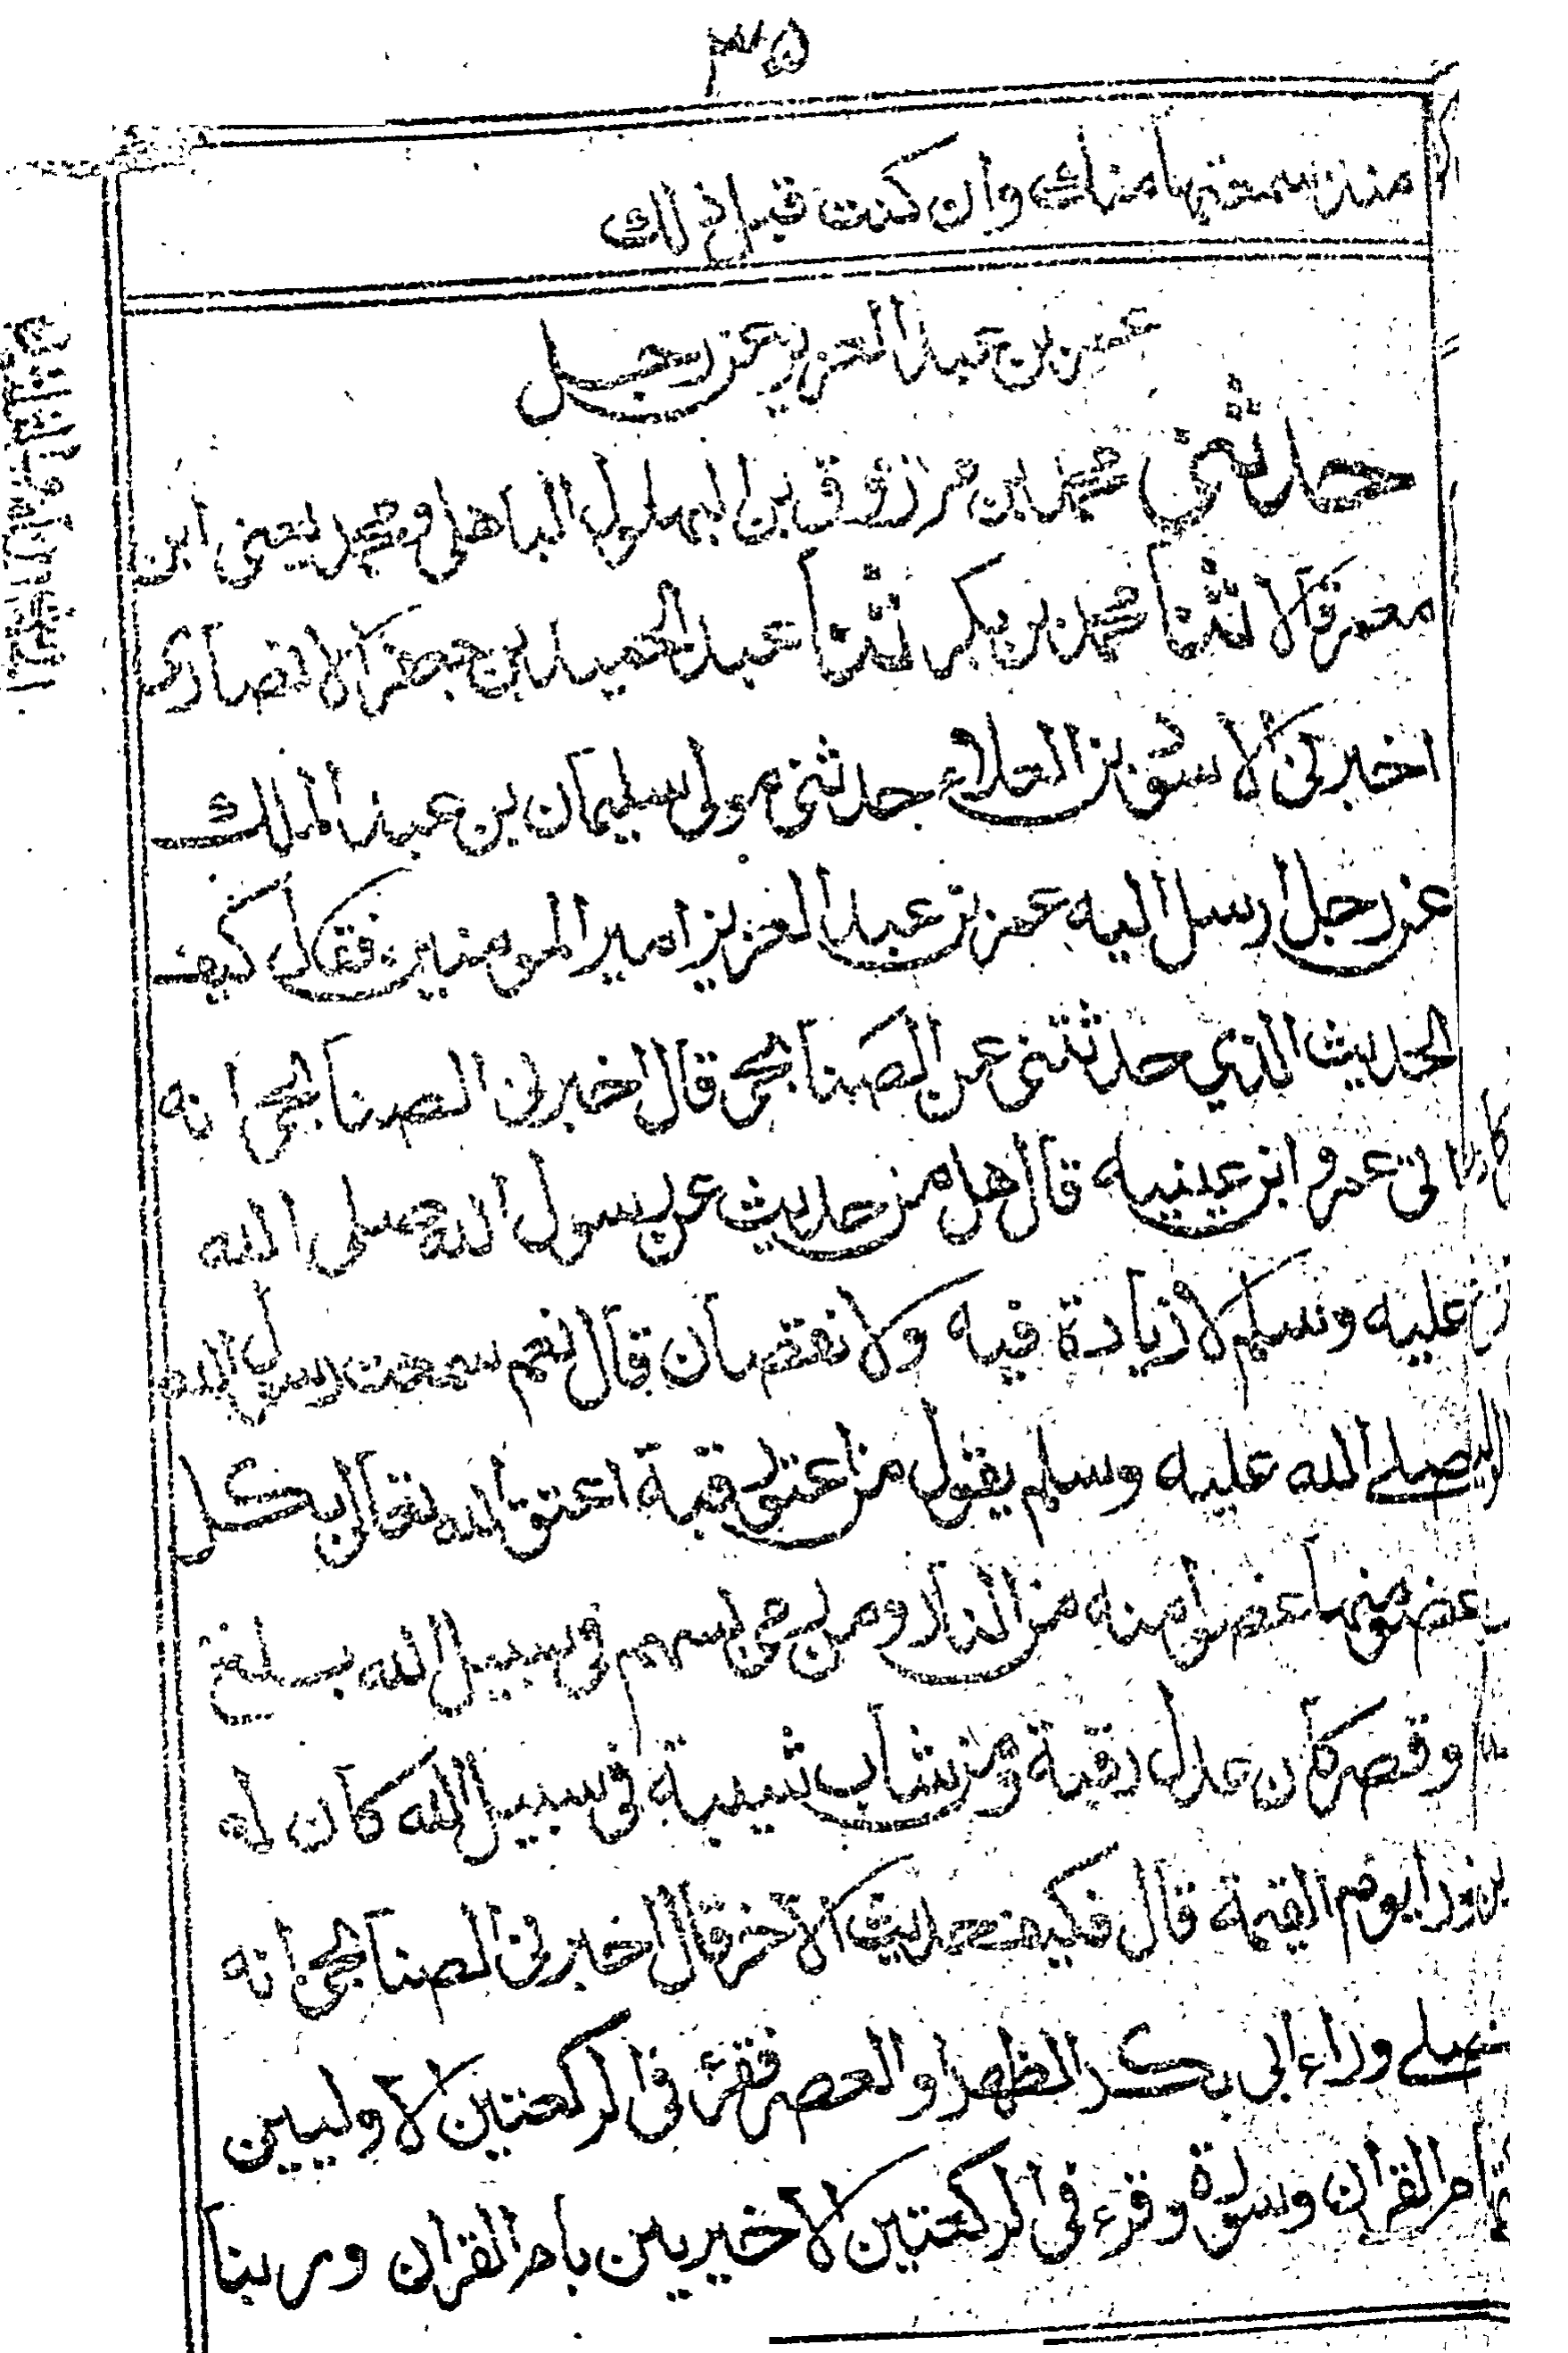 ٣٥
منذ سمعتها منك وان كنت قبل ذلك
عمر بن عبد العزيز عن رجل
حدثنى محمد بن مرزوق بن البهلول الباهلى ومحمد يعنى ابن
معمر قالا ثنا محمد بن بكر ثنا عبد الحميد بن جعفر الانصارى
اخبرنى الاسود بن العلاء حدثنى مولى سليمان بن عبد الملك
عن رجل ارسل اليه عمر بن عبد العزيز امير المومنين فقال كيف
الحديث الذي حدثتنى عن الصنابحى قال اخبرنى الصنابحى انه
لقى عمرو ابن عيينيه قال هل من حديث عن رسول الله صلى الله
عليه وسلم لا زيادة فيه ولا نقصان قال نعم سمعت رسول الله
صلى الله عليه وسلم يقول من اعتق رقبة اعتق الله تعالى بكل
عضو منها عضوا منه من النار ومن رمى بسهم فى سبيل الله بلغ
وقصر كان عدل رقبة ومن شاب شيبة فى سبيل الله كان له
نورا يوم القيمة قال فكيف حديث الاخر قال اخبرنى الصنابحى انه
صلى وراء ابى بكر الظهر او العصر فقرء فى الركعتين الاوليين
بام القران وسورة وقرء فى الركعتين الاخيريين بام القران وربنا